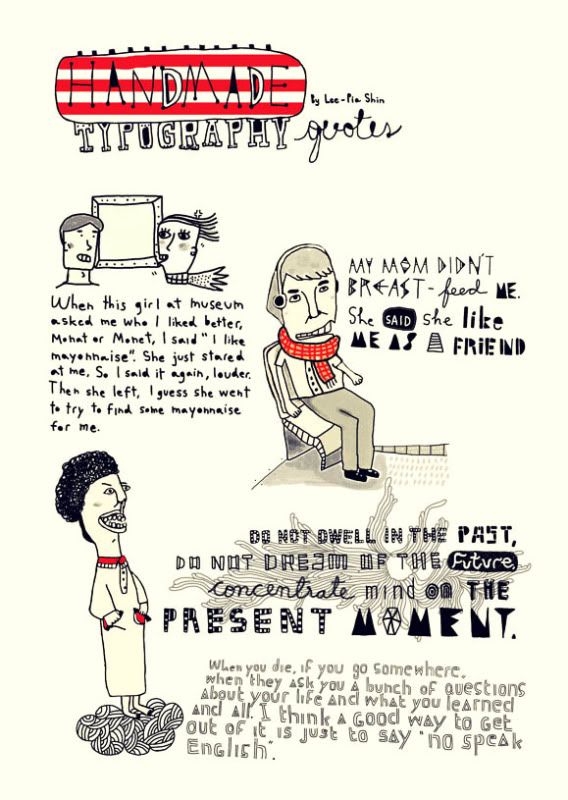 HANDMADE
By Lee-Pia Shin
TYPOGRAPHY quotes
When this girl at museum
asked me who I liked better,
Monat or Monet, I said "I like
mayonnaise". She just stared
at me, So I said it again, louder.
Then she left, I guess she went
to try to find some mayonnaise
for me.
MY MOM DIDN'T
BREAST-feed ME.
She SAID She like
ME AS A FRIEND
DO NOT DWELL IN THE PAST,
DO NOT DREAM OF THE Future,
concentrate mind ON THE
PRESENT MOMENT.
When you die, if you go somewhere,
when they ask you a bunch of questions
about your life and what you learned
and all. I think a good way to get
out of it is just to say "no speak
English".